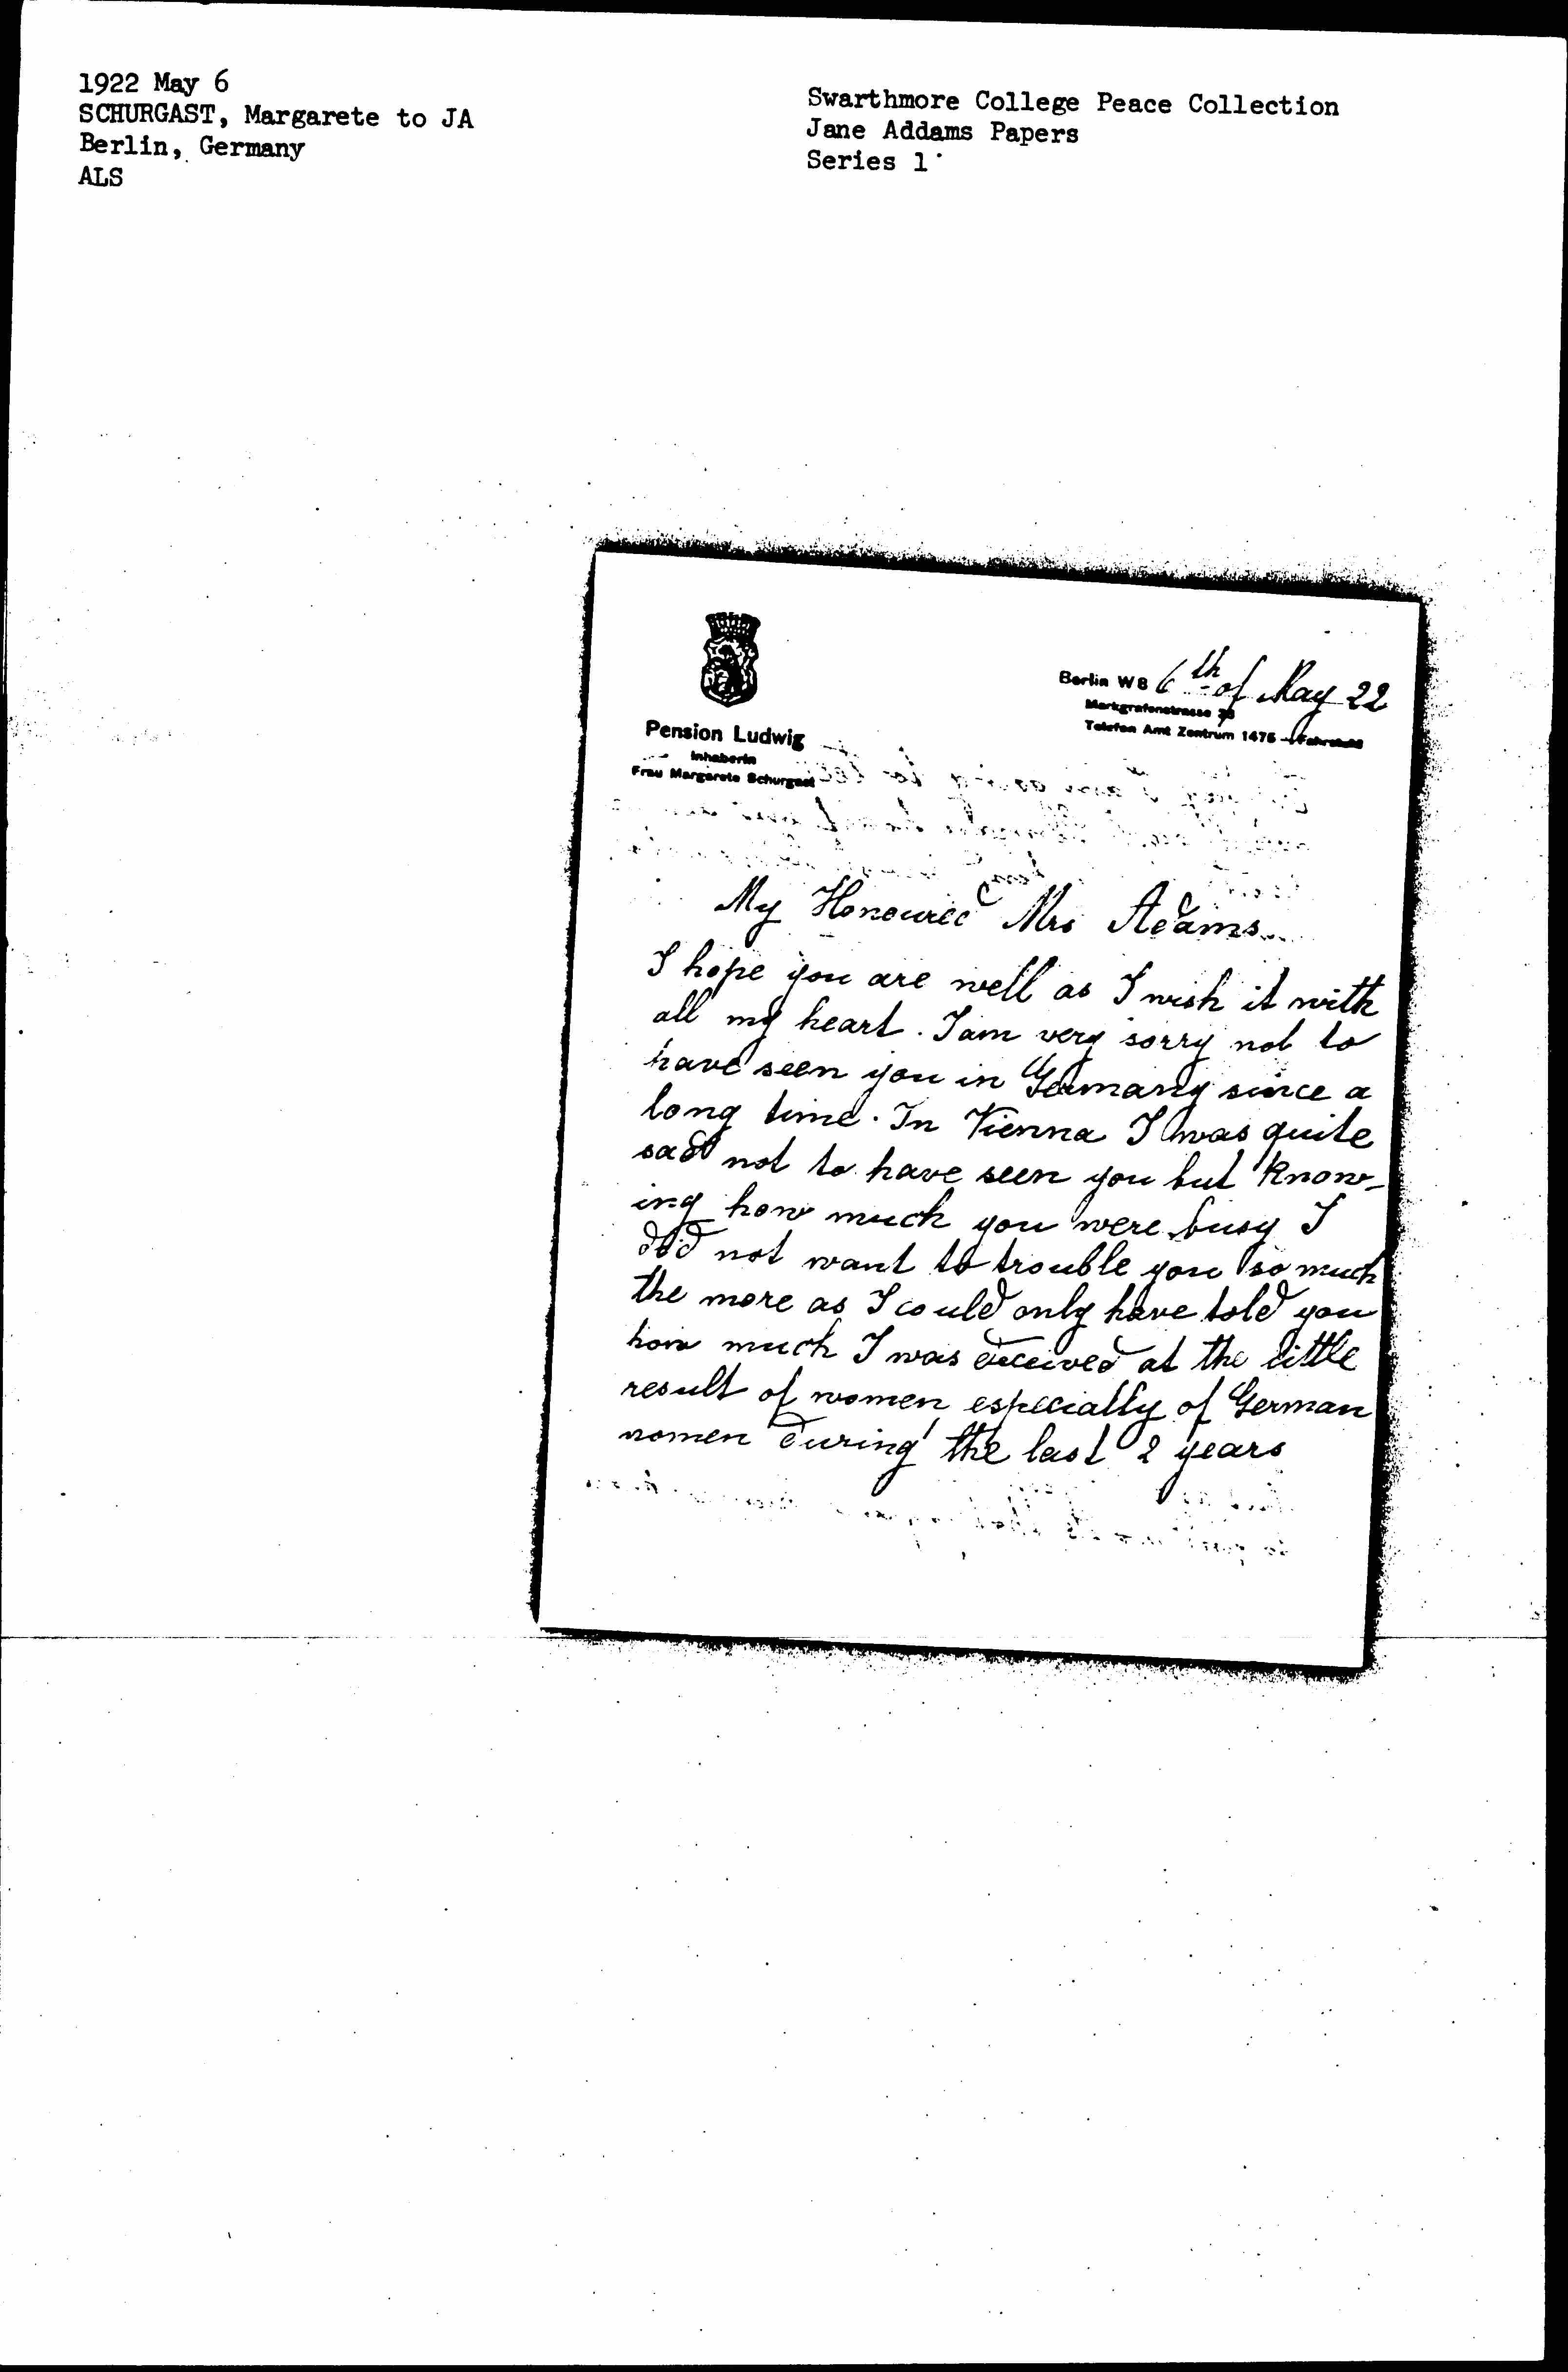 1922 May 6
SCHURGAST, Margarete to JA
Berlin, Germany
ALS
Swarthmore College Peace Collection
Jane Addams Papers
Series 1
Pension Ludwig
Inhaberin
Frau Margarete Schurgast
Berlin W 8 6th of May 22
Markgrafenstrasse
Telefon Amt Zentrum 1475 — Fahrstuhl
My Honoured Mrs Adams
I hope you are well as I wish it with
all my heart. I am very sorry not to
have seen you in Germany since a
long time. In Vienna I was quite
sad not to have seen you but know-
ing how much you were busy I
did not want to trouble you so much
the more as I could only have told you
how much I was deceived at the little
result of women especially of German
women during the last 2 years